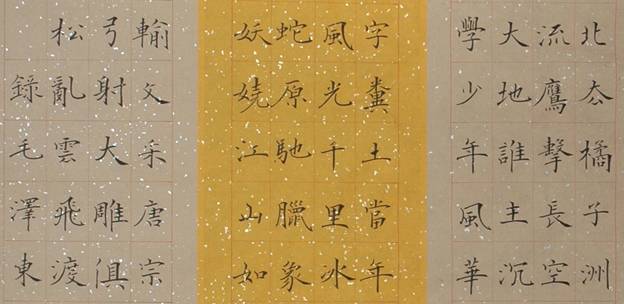 北厺橘子洲
流鷹擊長空
大地誰主沉
學少年風華
字糞土當年
風光千里冰
蛇原馳臘象
妖嬈江山如
輸文采唐宗
弓射大雕俱
松亂雲飛渡
錄毛澤東